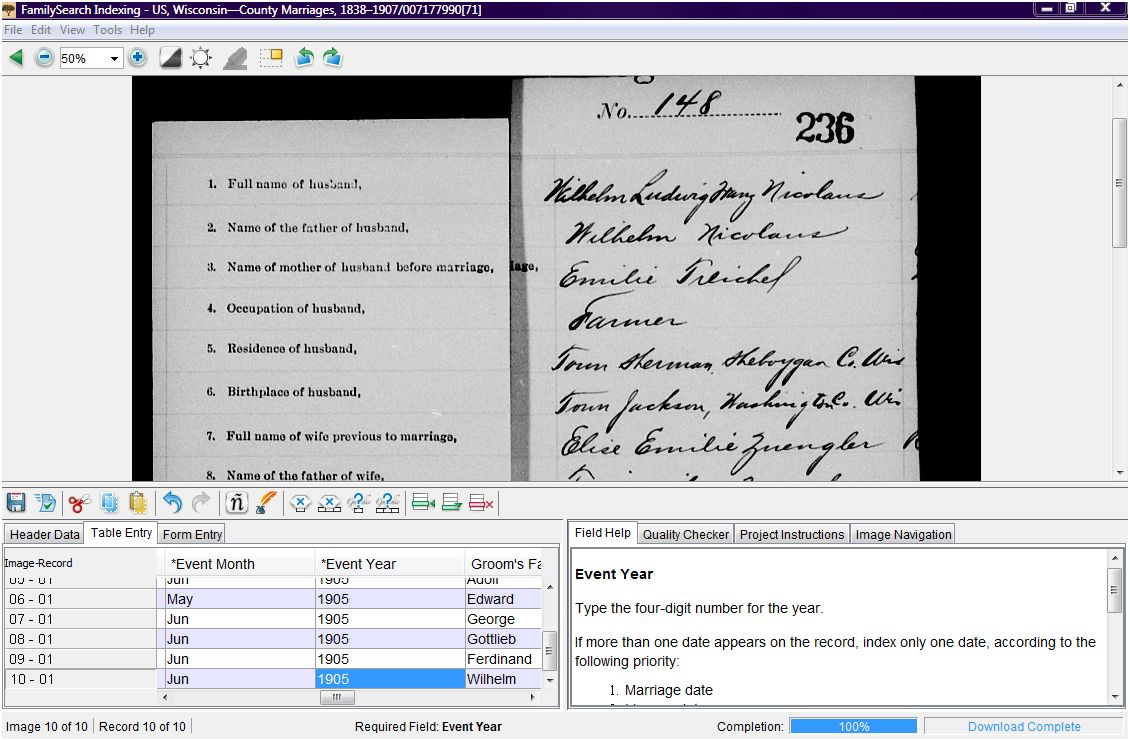 FamilySearch Indexing - US, Wisconsin—County Marriages, 1838–1907/007177990[71]
File Edit View Tools Help
50%
No. 148
236
1. Full name of husband,
Wilhelm Ludwig Franz Nicolaus
2. Name of the father of husband,
Wilhelm Nicolaus
3. Name of mother of husband before marriage,
iage,
Emilie Treichel
4. Occupation of husband,
Farmer
5. Residence of husband,
Town Sherman, Sheboygan Co. Wis
6. Birthplace of husband,
Town Jackson, Washington Co. Wis
7. Full name of wife previous to marriage,
Elise Emilie Zuengler
8. Name of the father of wife,
Header Data Table Entry Form Entry
Image-Record *Event Month *Event Year Groom's Fa
05 - 01 Jun 1905 Adolf
06 - 01 May 1905 Edward
07 - 01 Jun 1905 George
08 - 01 Jun 1905 Gottlieb
09 - 01 Jun 1905 Ferdinand
10 - 01 Jun 1905 Wilhelm
Field Help Quality Checker Project Instructions Image Navigation
Event Year
Type the four-digit number for the year.
If more than one date appears on the record, index only one date, according to the
following priority:
1. Marriage date
Image 10 of 10 Record 10 of 10 Required Field: Event Year Completion: 100% Download Complete